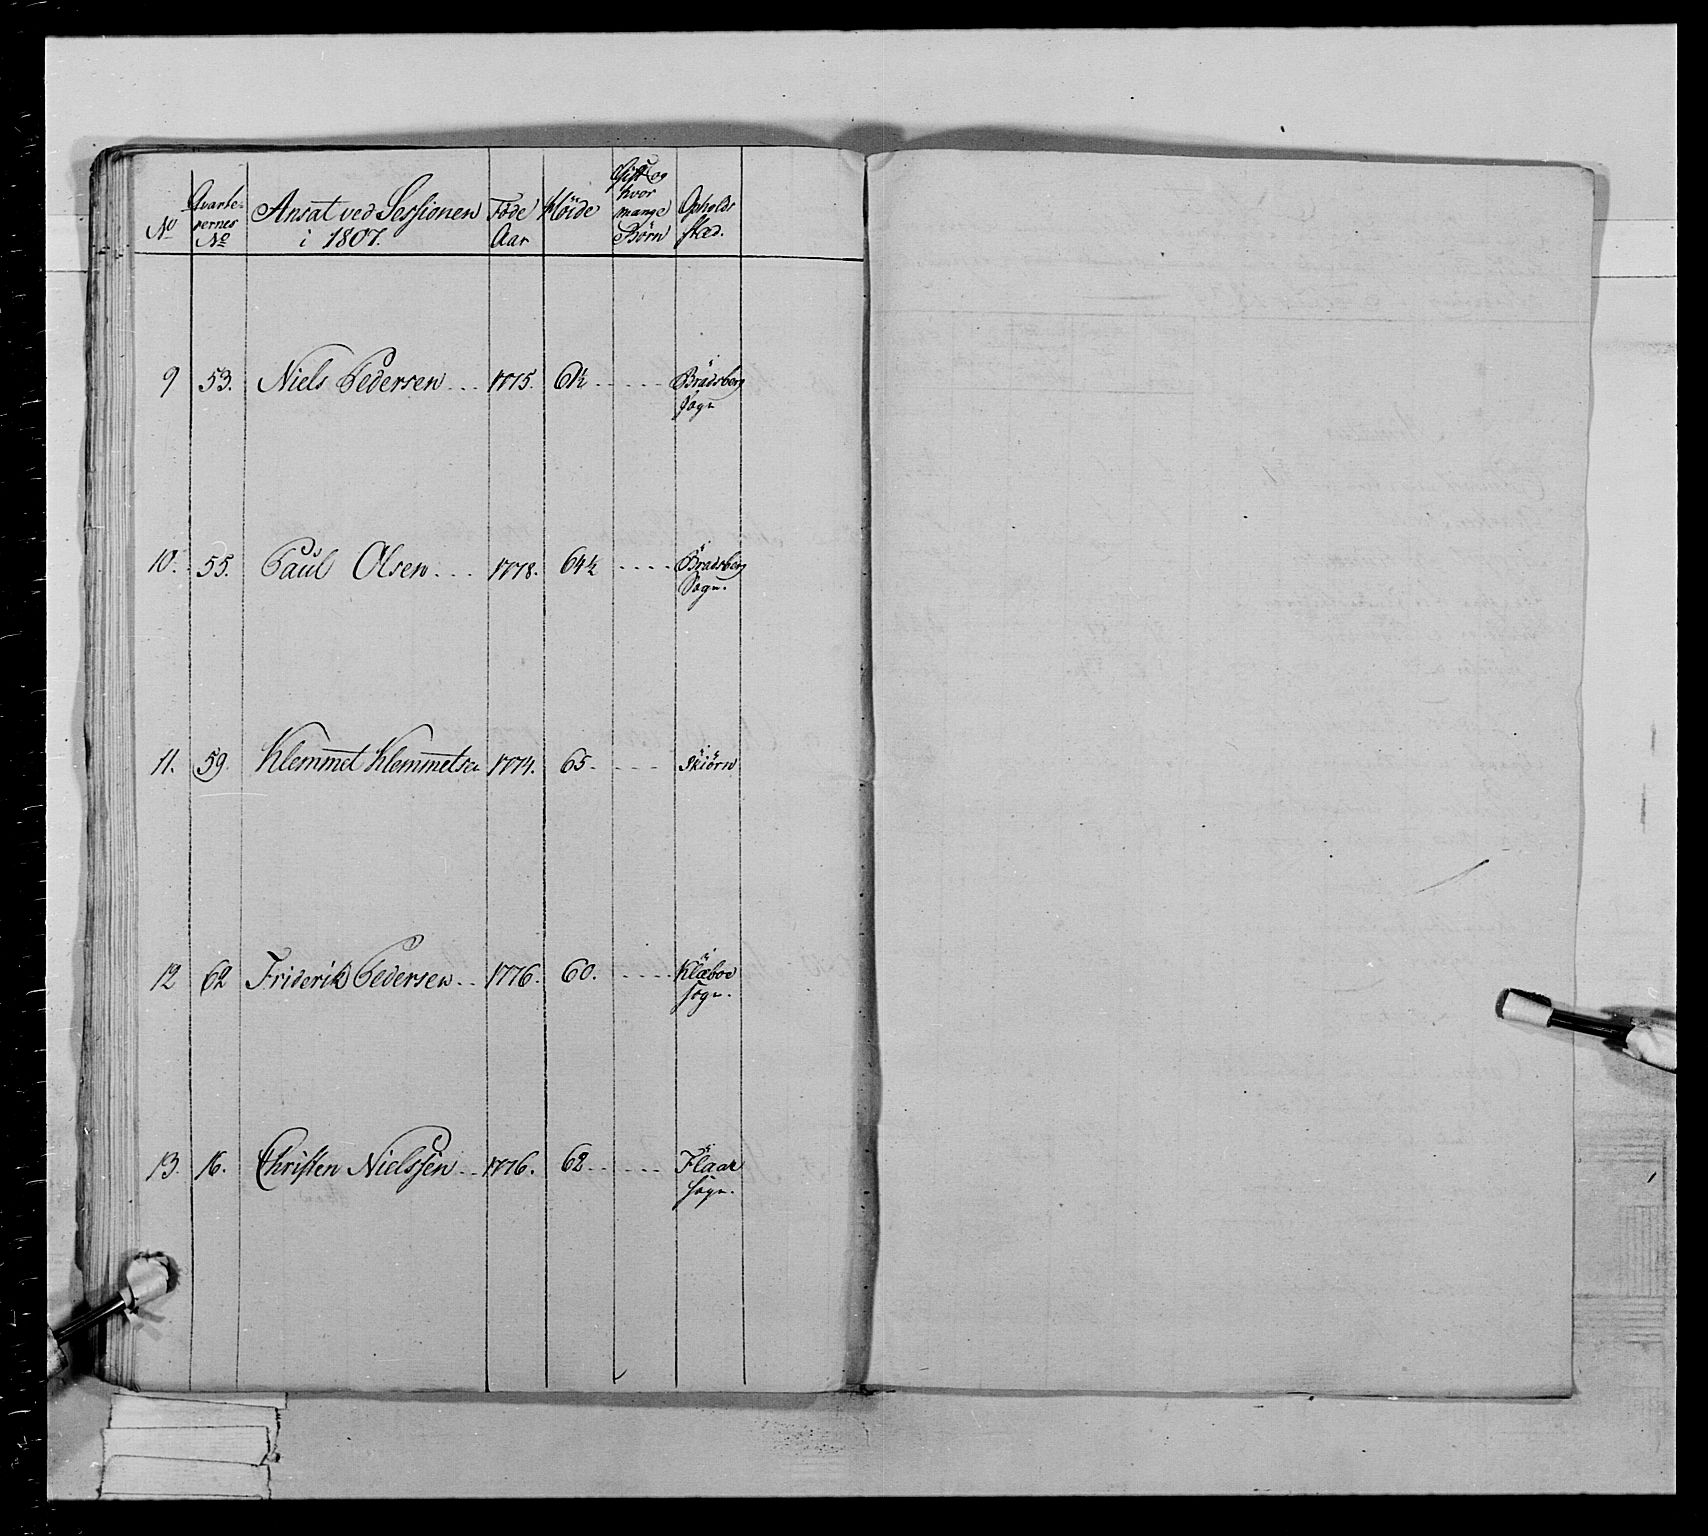 No Qvarte-rernes No Ansat ved Sessionen i 1807. Føde Aar Höide Gift og hvor mange Börn Opholds stæd.
9 53. Niels Pedersen 1775. 61½ Bradsberg
Sogn
10. 55. Paul Olsen 1778. 64½ Bradsberg
Sogn.
11. 59. Klemmet Klemmetsen 1774. 65 Skiörn
12 62 Friderik Pedersen 1776. 60. Klæboe
Sogn.
13. 16. Christen Nielssen 1776. 62 Flaar
Sogn.